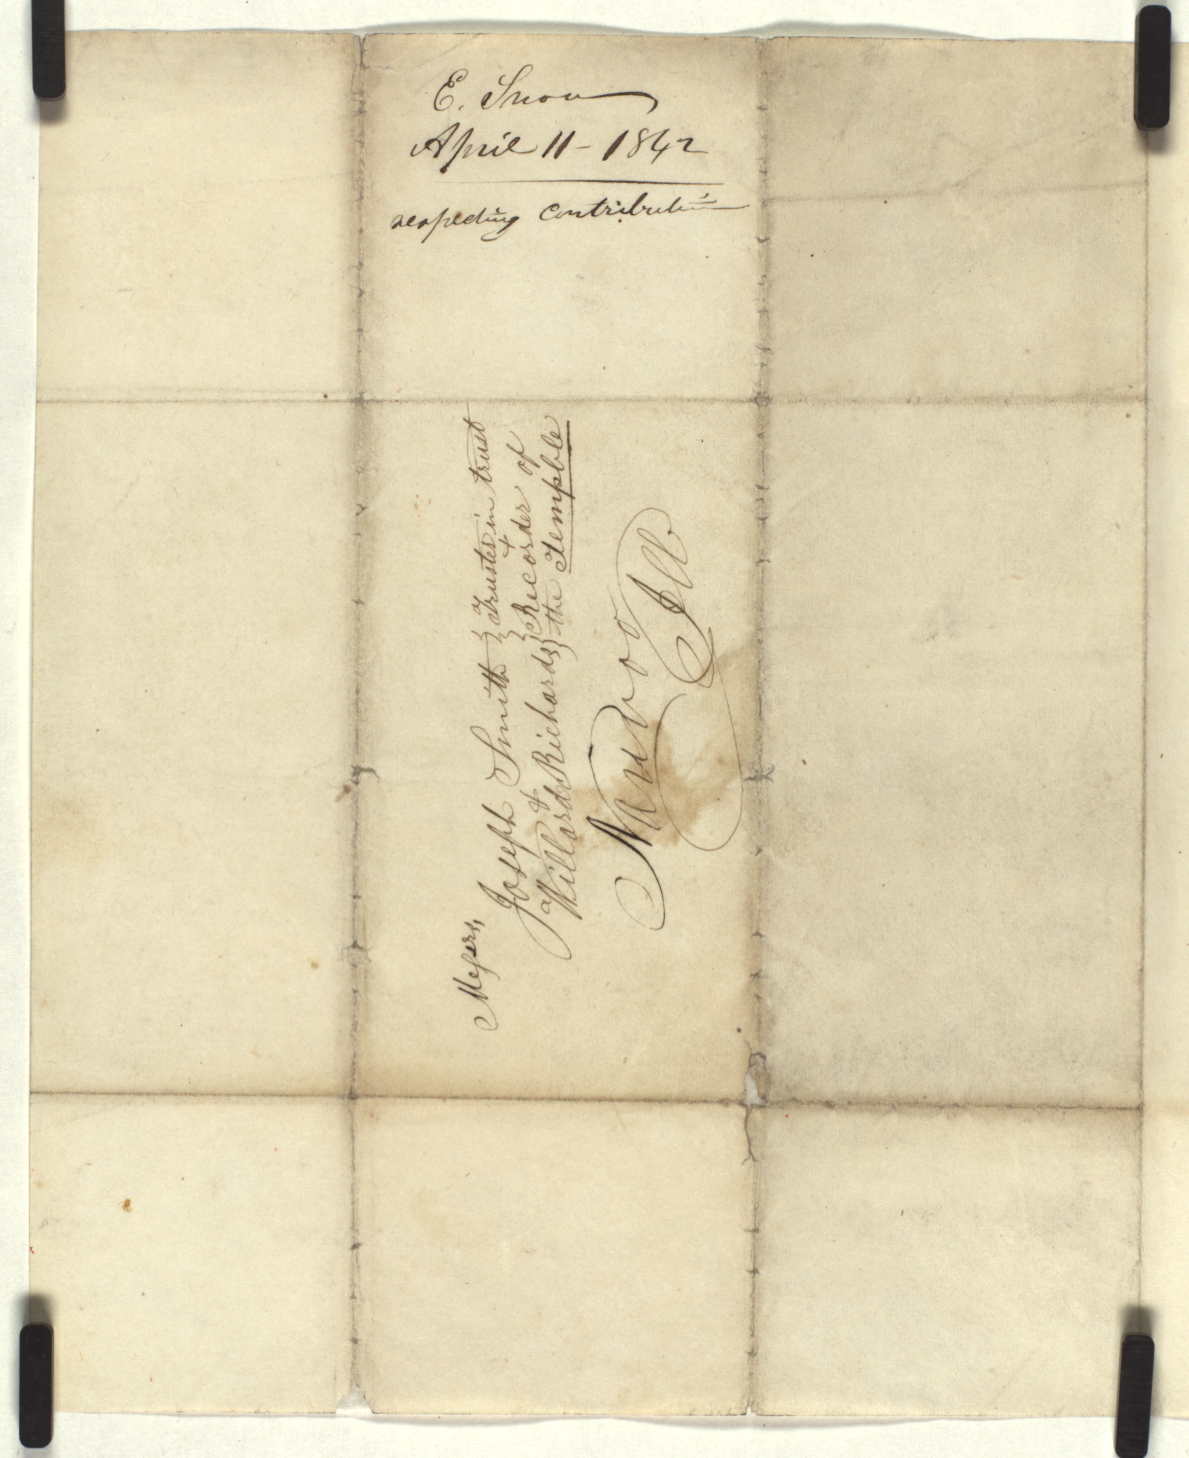 E. Snow
April 11 - 1842
respecting contribution
Messrs,
Joseph Smith } Trustee in trust
& +
Willard Richards } Recorder of
} the Tempble
Nauvoo
Ill